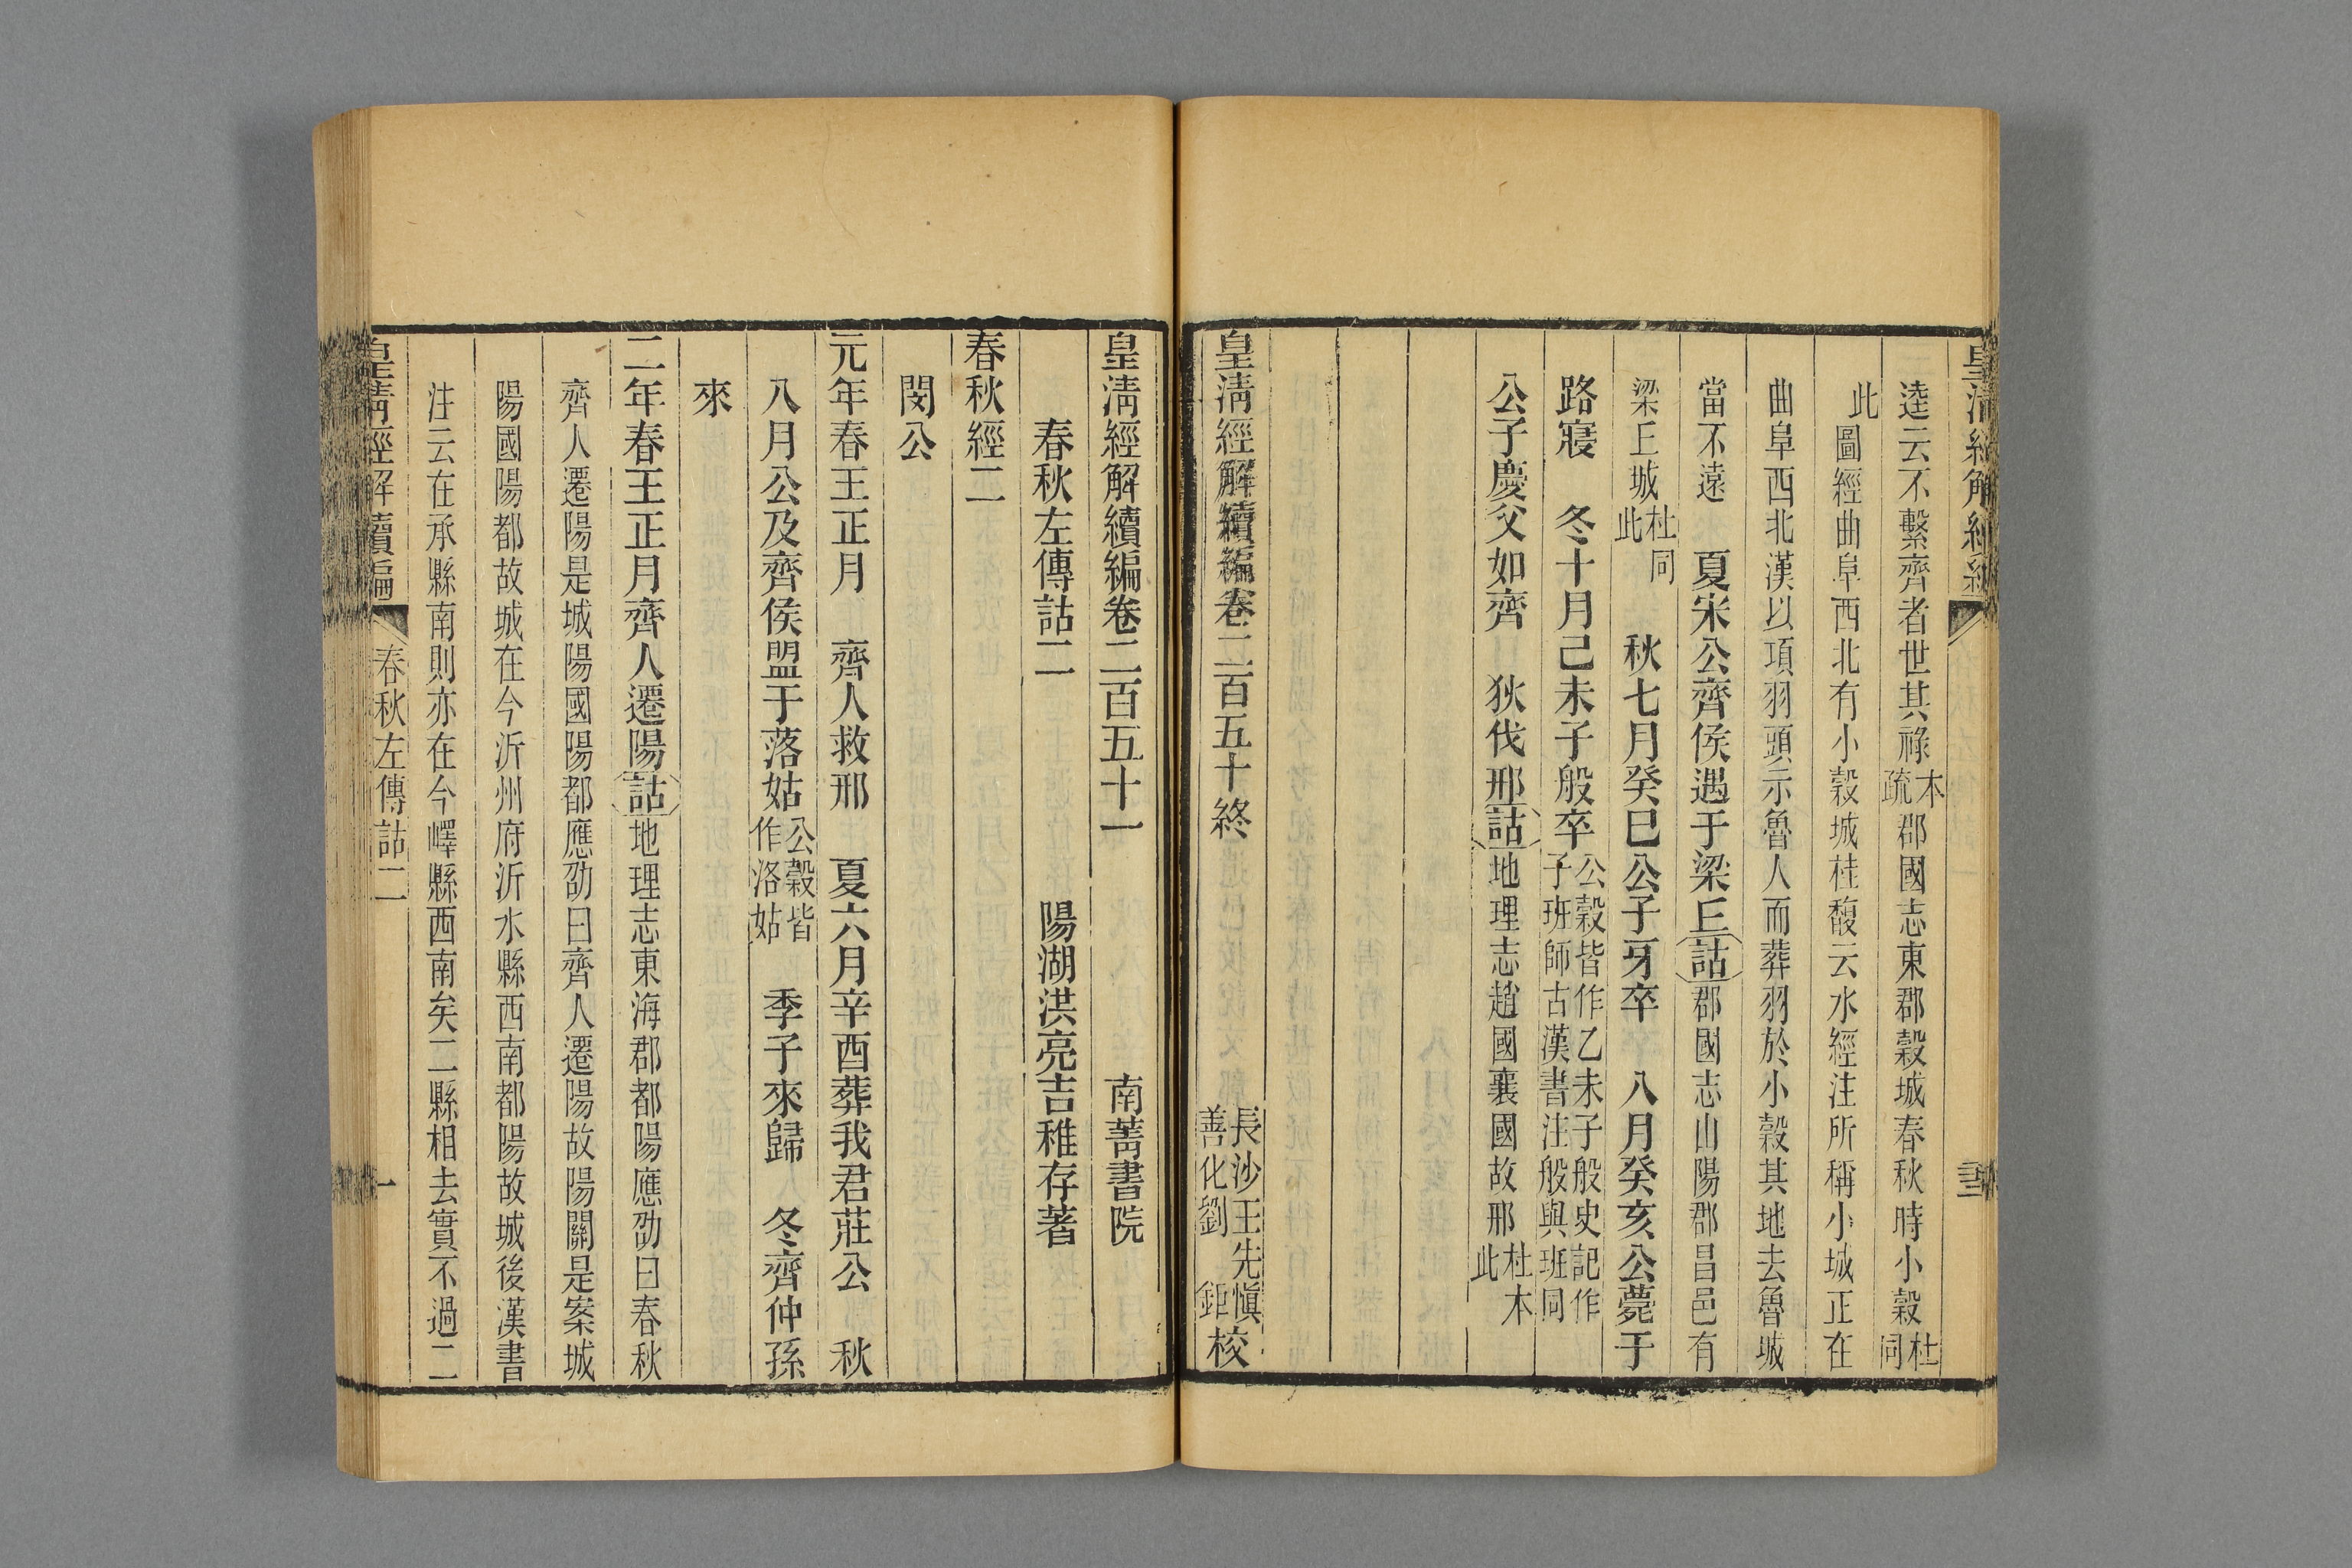 逵云不繫齊者世其祿本疏郡國志東郡穀城春秋時小穀杜同
此圖經曲阜西北有小穀城桂馥云水經注所稱小城正在
曲阜西北漢以項羽頭示魯人而葬羽於小穀其地去魯城
當不遠　夏宋公齊侯遇于梁丘詁郡國志山陽郡昌邑有
梁丘城杜同此　秋七月癸巳公子牙卒　八月癸亥公薨于
路寢　冬十月己未子般卒公穀皆作乙未子般史記作子班師古漢書注般與班同
公子慶父如齊　狄伐邢詁地理志趙國襄國故邢杜本此
皇清經解續編卷二百五十終　長沙王先愼善化劉鉅校
皇清經解續編卷二百五十一　南菁書院
春秋左傳詁二　陽湖洪亮吉稚存著
春秋經二
閔公
元年春王正月　齊人救邢　夏六月辛酉葬我君莊公　秋
八月公及齊侯盟于落姑公穀皆作洛姑　季子來歸　冬齊仲孫
來
二年春王正月齊人遷陽詁地理志東海郡都陽應劭曰春秋
齊人遷陽是城陽國陽都應劭曰齊人遷陽故陽關是案城
陽國陽都故城在今沂州府沂水縣西南都陽故城後漢書
注云在承縣南則亦在今嶧縣西南矣二縣相去實不過二
皇清經解續編　春秋左傳詁二　一